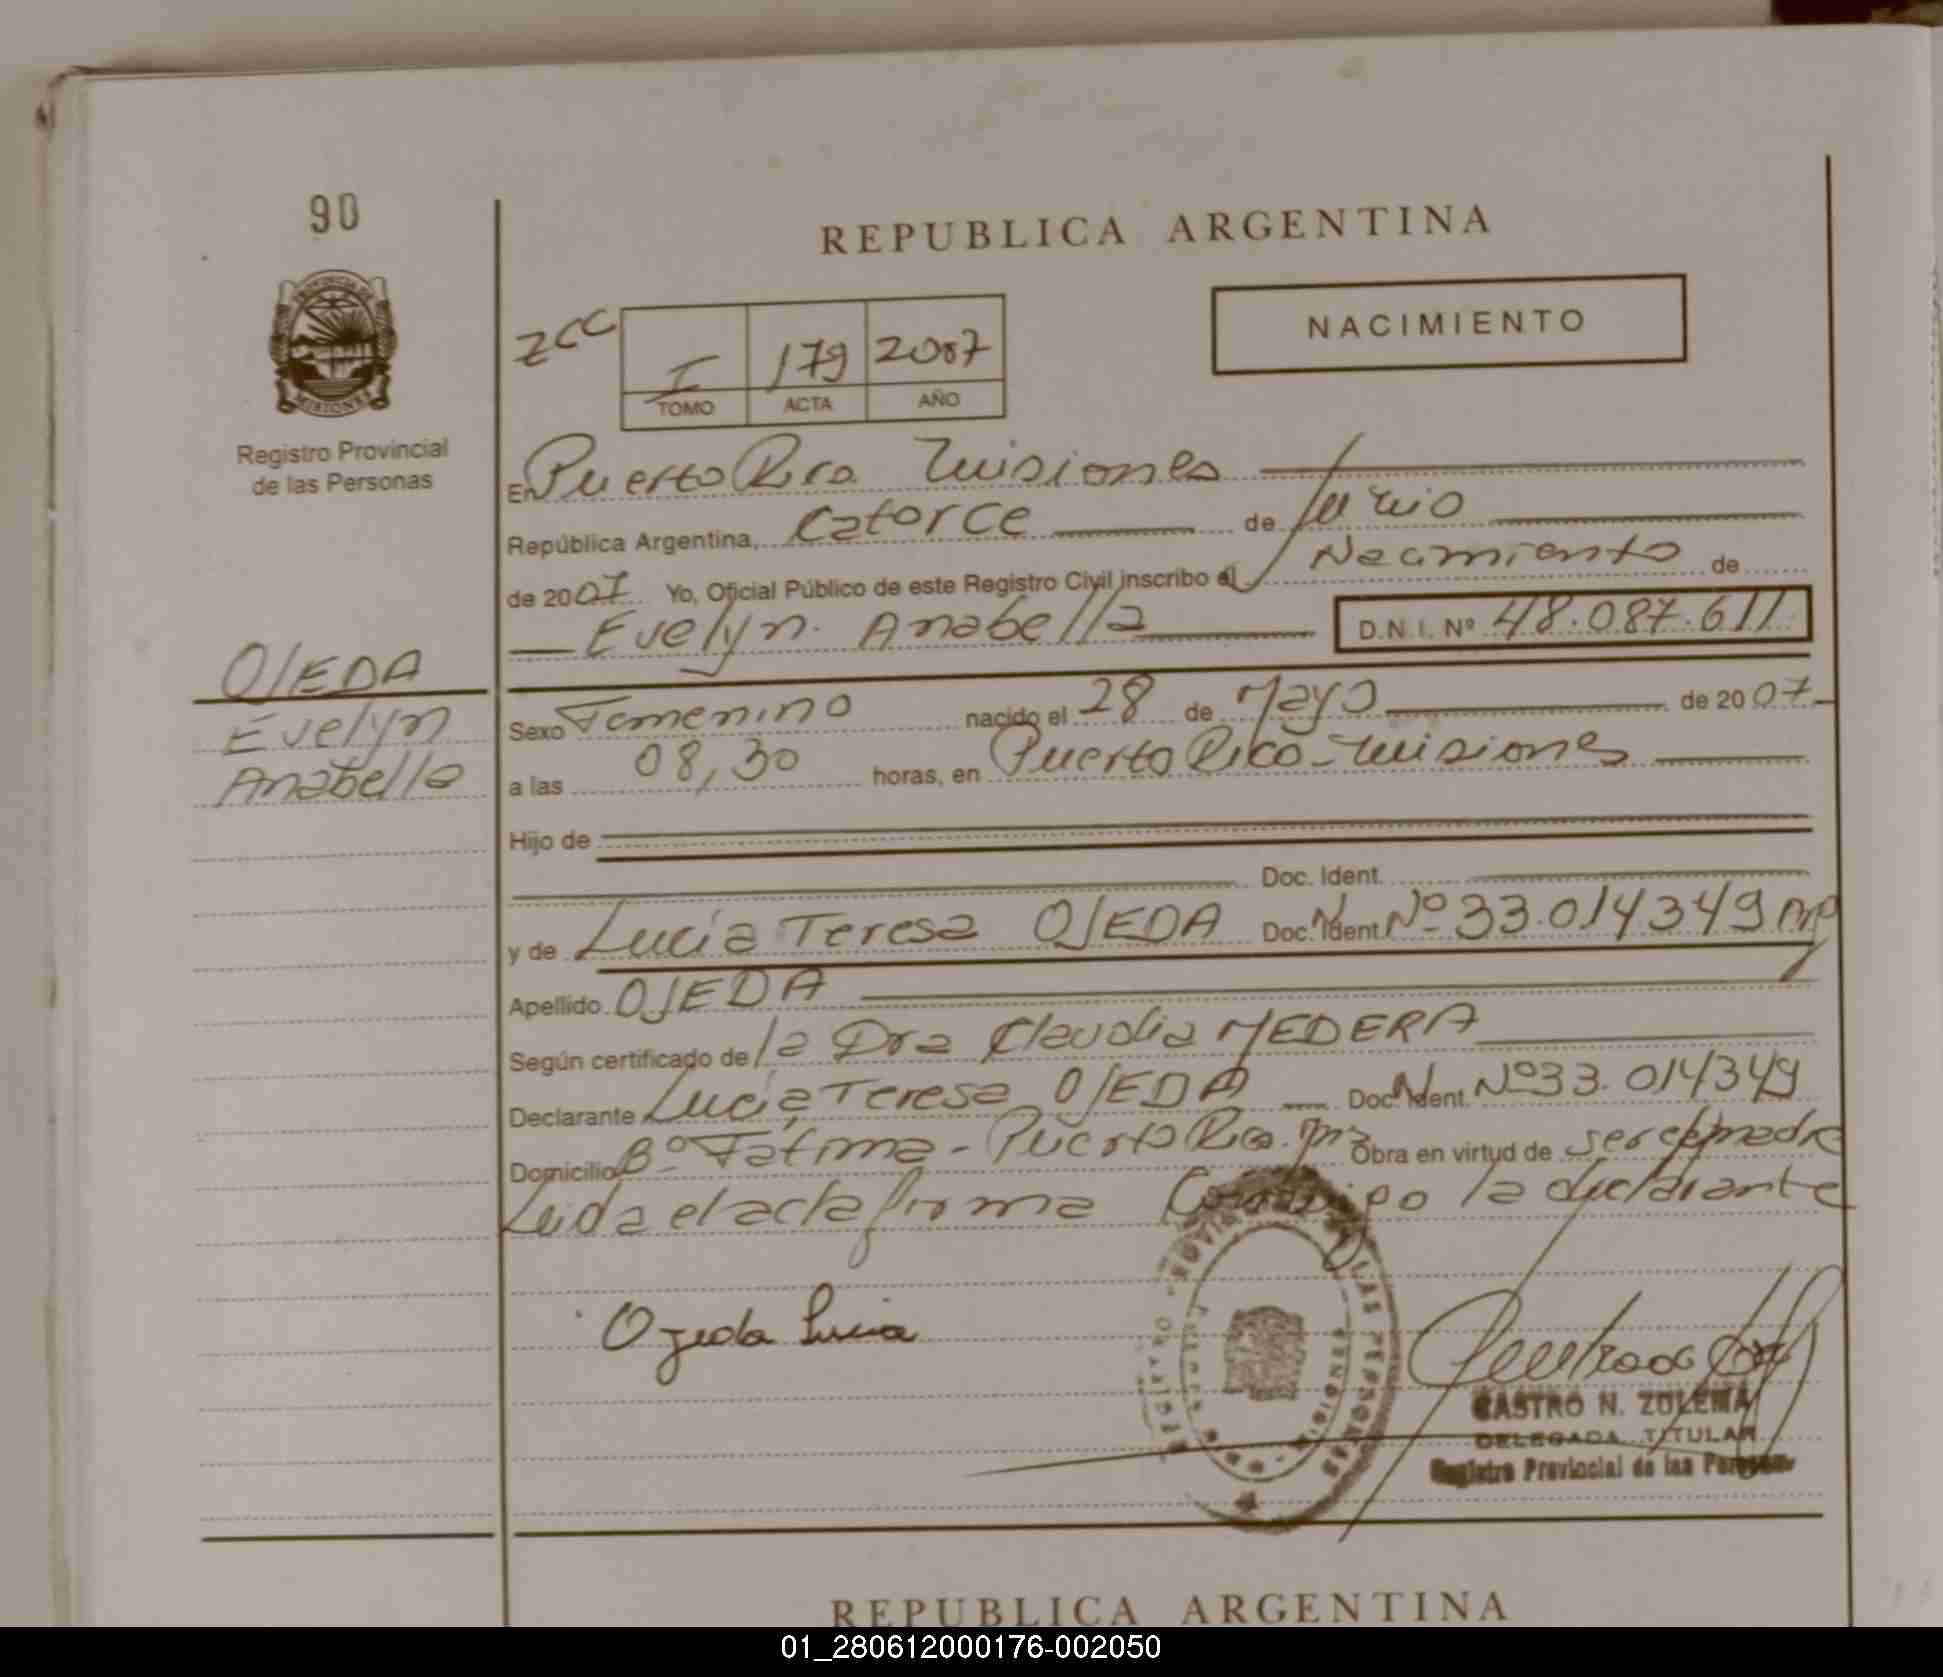 90
REPUBLICA ARGENTINA
PROVINCIA DE
MISIONES
Registro Provincial
de las Personas
NACIMIENTO
zcc
I 179 2007
TOMO ACTA AÑO
En Puerto Rico Misiones
República Argentina, catorce de Junio
de 2007 Yo, Oficial Público de este Registro Civil inscribo el Nacimiento de
Evelyn Anabella D.N.I. Nº 48.087.611
OJEDA
Evelyn
Anabella
Sexo Femenino nacido el 28 de Mayo de 2007
a las 08,30 horas, en Puerto Rico - Misiones
Hijo de
Doc. Ident.
y de Lucía Teresa OJEDA Doc. Ident. Nº 33.014349
Apellido OJEDA
Según certificado de la Dra Claudia MEDERA
Declarante Lucía Teresa OJEDA Doc. Ident. Nº 33.014349
Domicilio Bº Fátima - Puerto Rico. Obra en virtud de ser madre
Leida el acta firma Conmigo la declarante
Ojeda Lucia
CASTRO N. ZULEMA
DELEGADA TITULAR
Registro Provincial de las Personas
REPUBLICA ARGENTINA
01_280612000176-002050